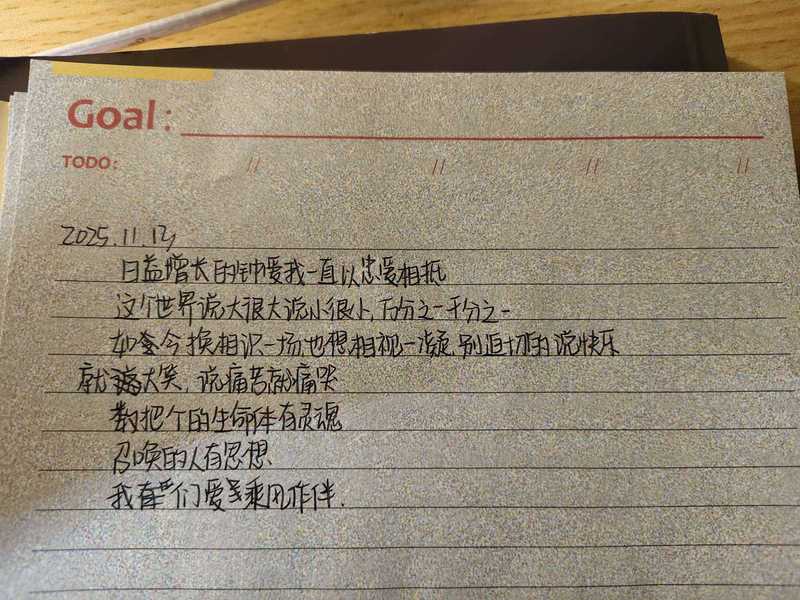 Goal:
TODO: // // // //
2025.11.12
日益增长的钟爱我一直以忠爱相抵
这个世界说大很大说小很小,万分之一千分之一
如今换相识一场,也想相视一,别迫切的说快乐
就大笑,说痛苦就痛哭
数把个的生命体有灵魂
召唤的人有思想
我有们爱乘用作伴.